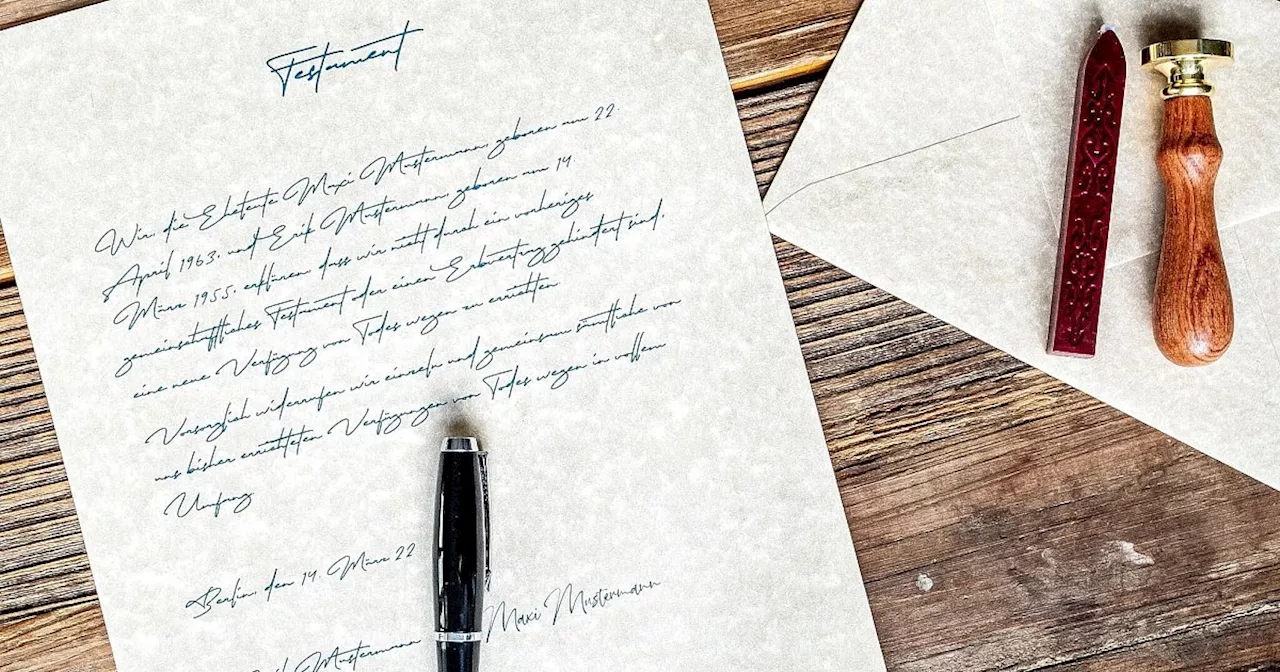 Testament
Wir, die Eheleute Maxi Mustermann, geboren am 22.
April 1963, und Erik Mustermann, geboren am 14.
März 1955, erklären, dass wir nicht durch ein vorheriges
gemeinschaftliches Testament oder einen Erbvertrag gehindert sind,
eine neue Verfügung von Todes wegen zu errichten
Vorsorglich widerrufen wir einzeln und gemeinsam sämtliche von
uns bisher errichteten Verfügungen von Todes wegen in vollem
Umfang
Berlin, den 14. März 22
Erik Mustermann Maxi Mustermann